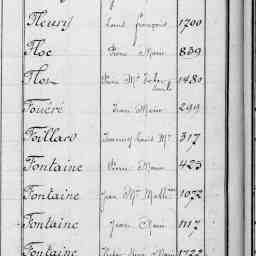 Fleury Louis françois 1700
Floc Pierre Marie 839
Flos Pierre Mie 1480
Fouéré Jean Marie 299
Foillard Louis Mie 317
Fontaine Pierre Marie 423
Fontaine Jean Mie Math 1072
Fontaine Jean Marie 1117
Fontaine Marie 1722